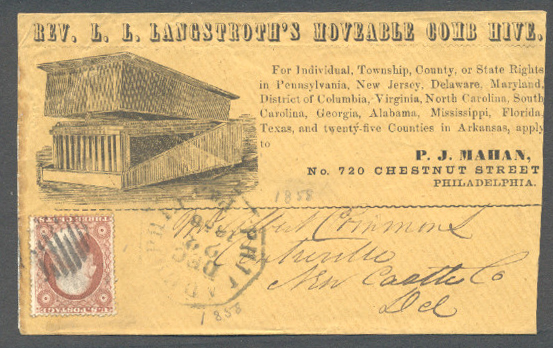 REV. L. L. LANGSTROTH'S MOVEABLE COMB HIVE.
For Individual, Township, County, or State Rights
in Pennsylvania, New Jersey, Delaware, Maryland,
District of Columbia, Virginia, North Carolina, South
Carolina, Georgia, Alabama, Mississippi, Florida,
Texas, and twenty-five Counties in Arkansas, apply
to
P. J. MAHAN,
No. 720 CHESTNUT STREET
PHILADELPHIA.
1858
Commons
New Castle Co
Del
DEC
1858
THREE CENTS
U.S. POSTAGE